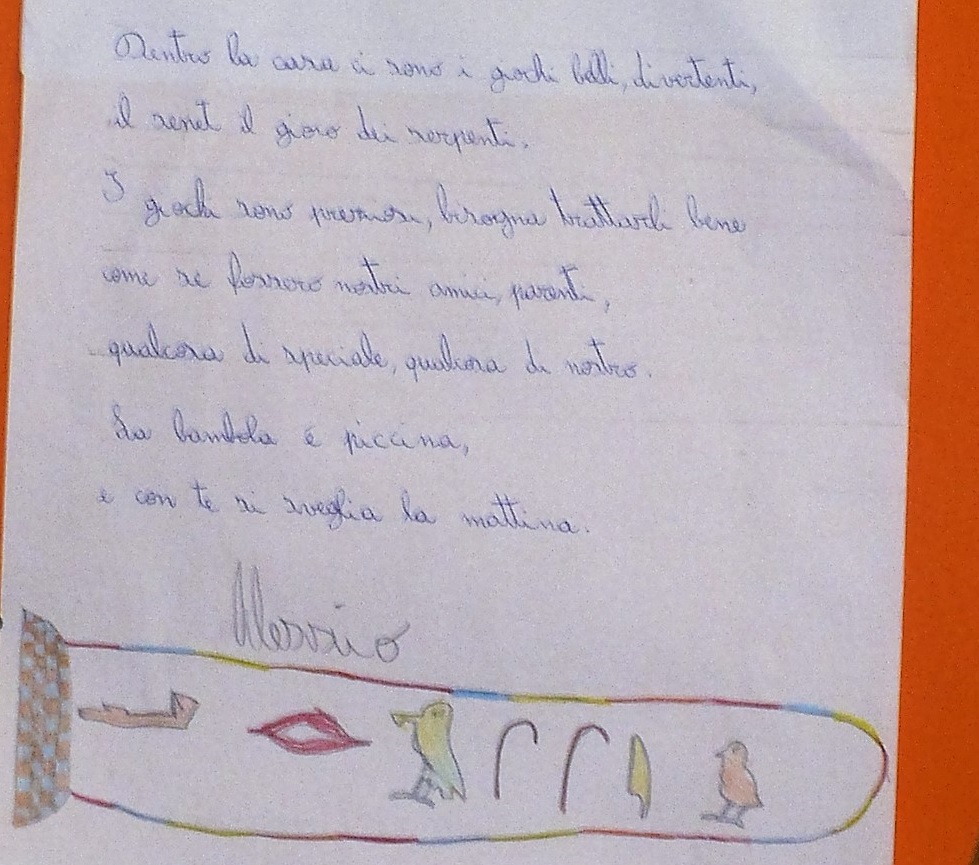 Dentro la casa ci sono i giochi belli, divertenti,
il senet il gioco dei serpenti.
I giochi sono preziosi, bisogna trattarli bene
come se fossero nostri amici, parenti,
qualcosa di speciale, qualcosa di nostro.
La bambola è piccina,
e con te si sveglia la mattina.
Alessio